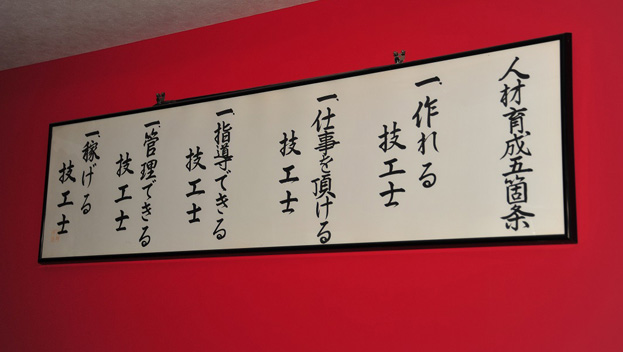 人材育成五箇条
一、作れる
技工士
一、仕事を頂ける
技工士
一、指導できる
技工士
一、管理できる
技工士
一、稼げる
技工士